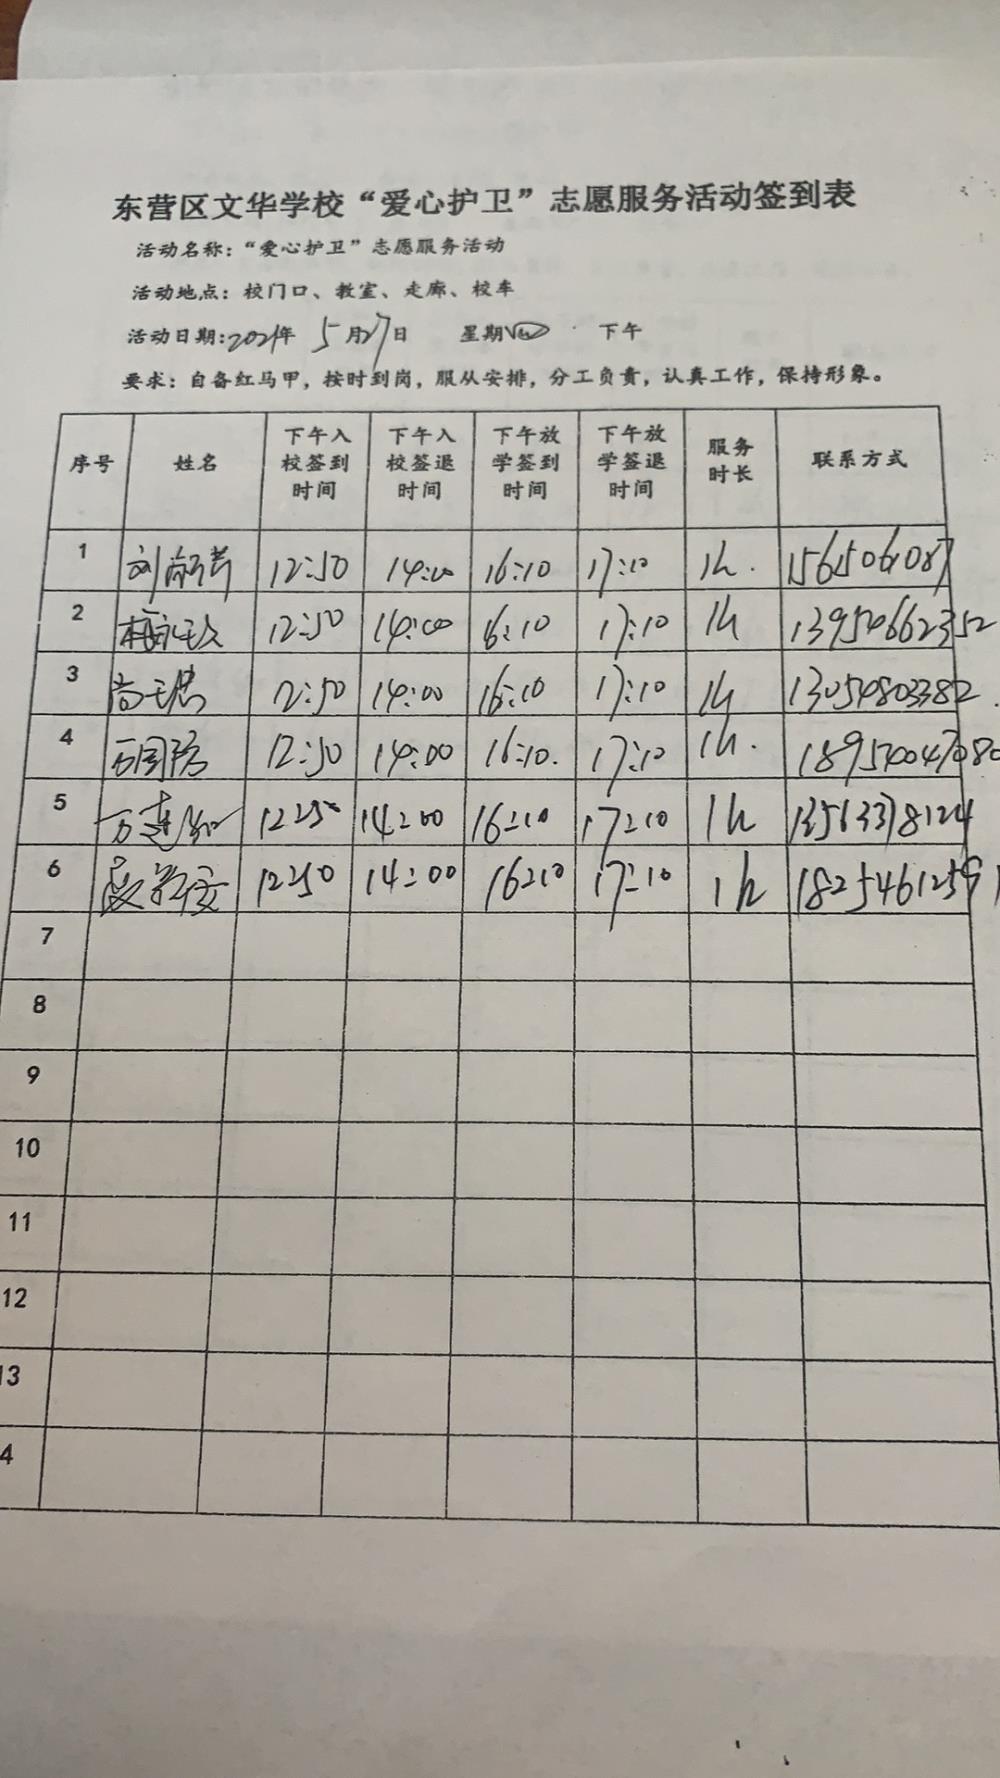 东营区文华学校“爱心护卫”志愿服务活动签到表
活动名称：“爱心护卫”志愿服务活动
活动地点：校门口、教室、走廊、校车
活动日期：2021年 5月27日 星期四 下午
要求：自备红马甲，按时到岗，服从安排，分工负责，认真工作，保持形象。
序号 姓名 下午入校签到时间 下午入校签退时间 下午放学签到时间 下午放学签退时间 服务时长 联系方式
1 12:50 14:00 16:10 17:10 1h.
2 12:50 14:00 16:10 17:10 1h 13954662352
3 12:50 14:00 16:10 17:10 1h 13054803382
4 12:50 14:00 16:10. 17:10 1h. 189540047080
5 12:50 14:00 16:10 17:10 1h 13563378124
6 12:50 14:00 16:10 17:10 1h
7
8
9
10
11
12
13
4